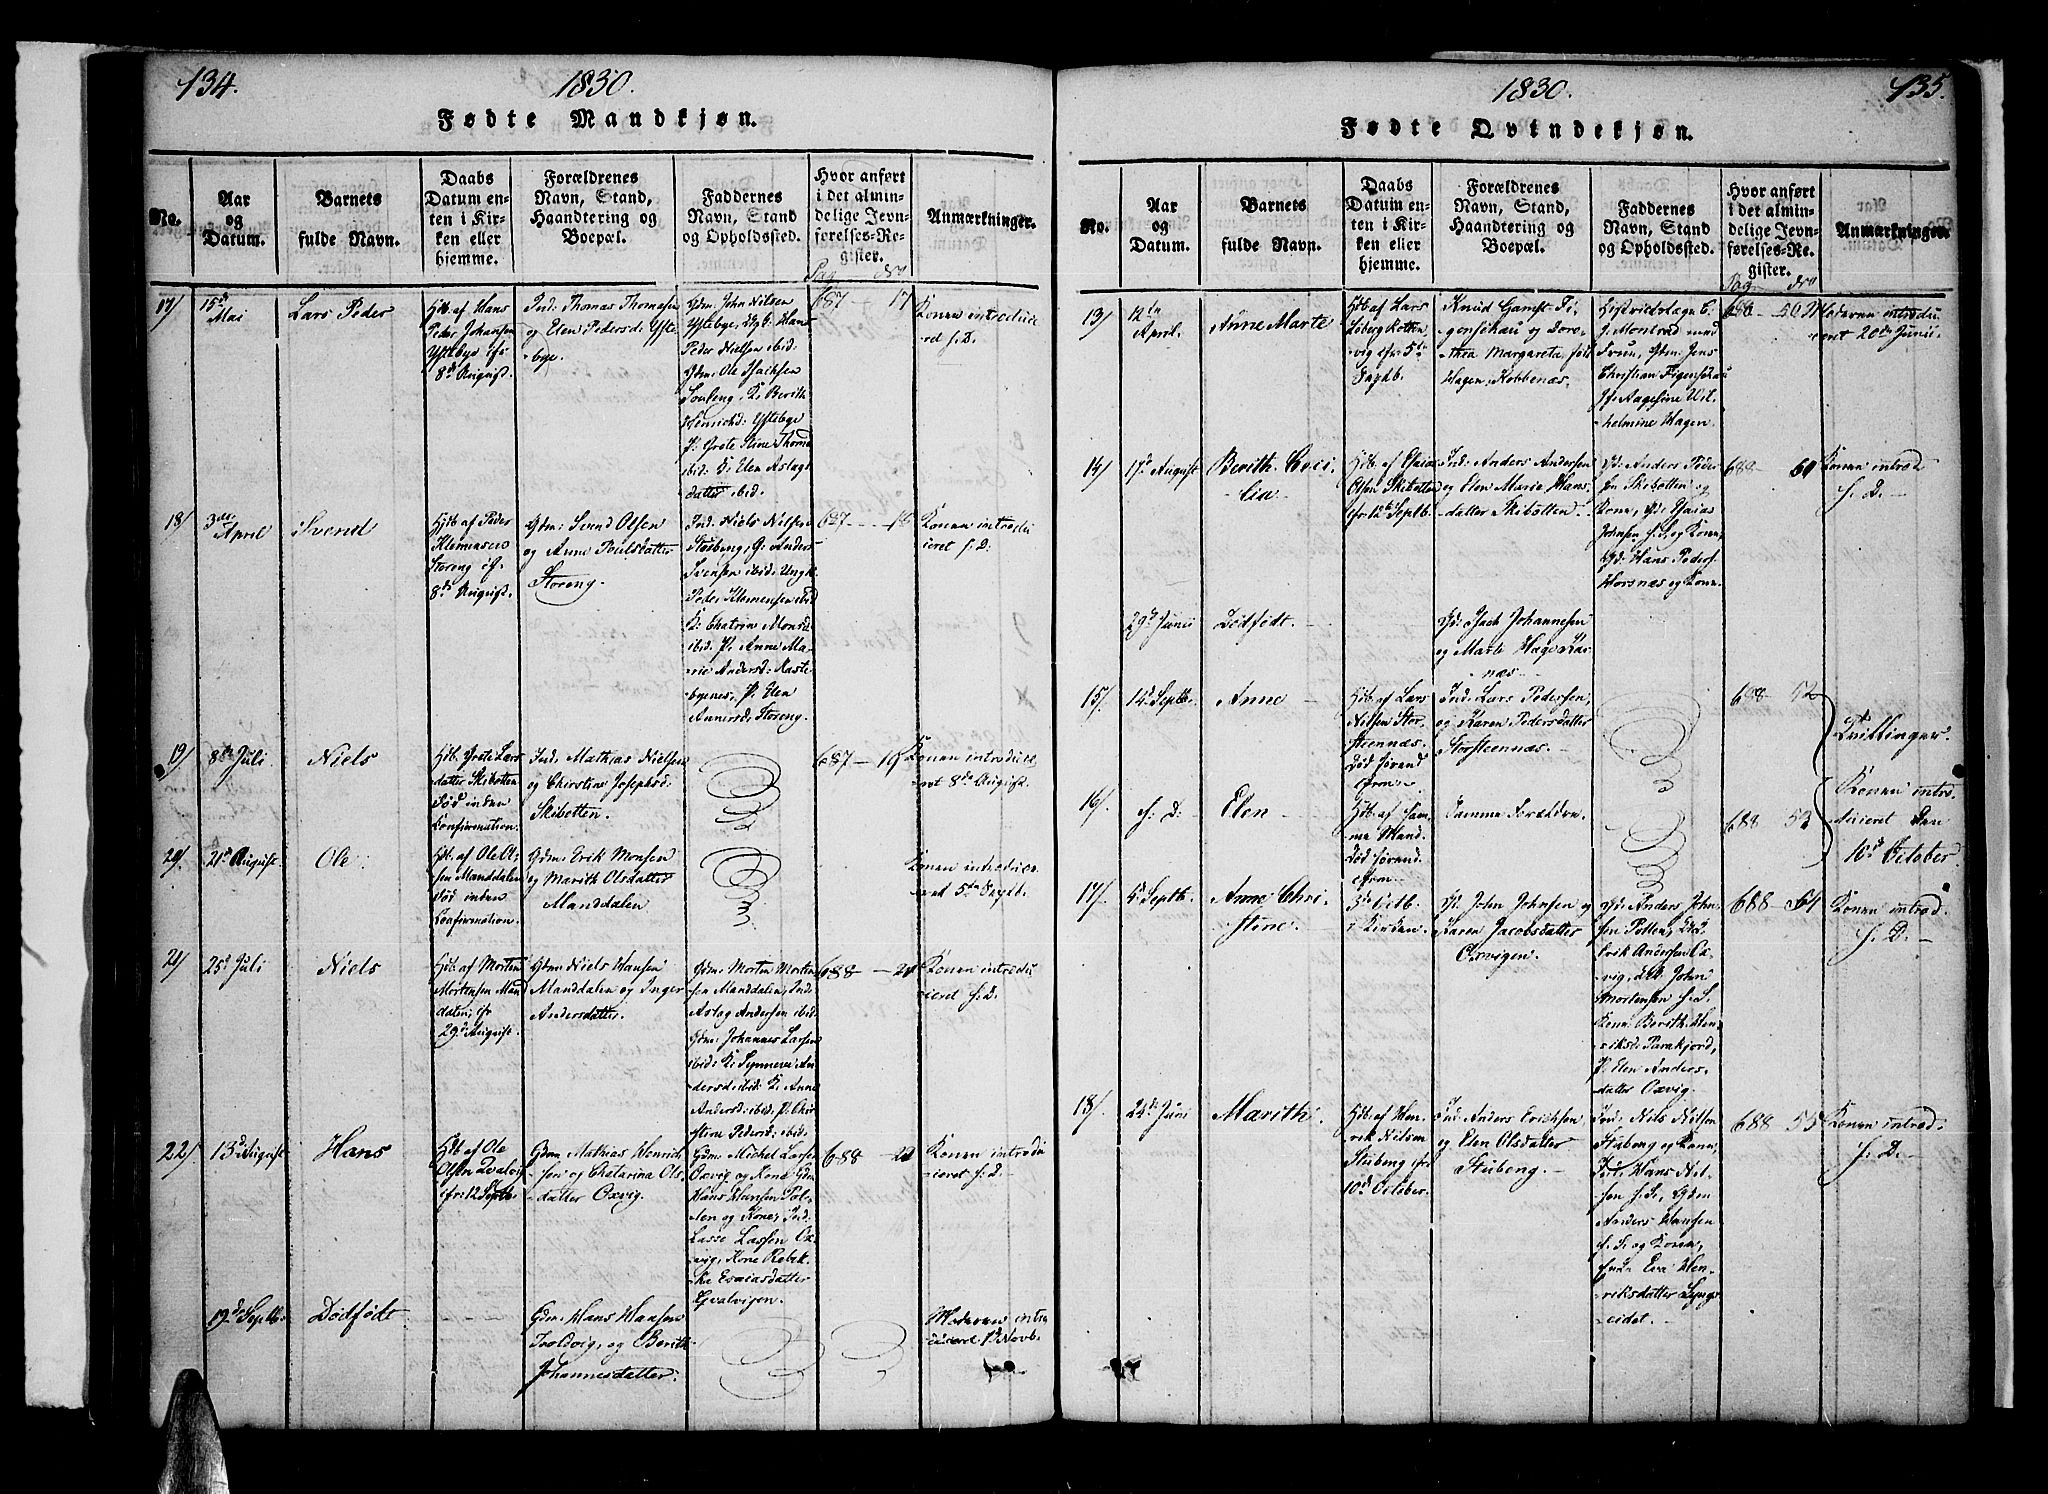 134.
1830.
Fødte Mandkjøn.
No.
Aar
og
Datum.
Barnets
fulde Navn.
Daabs
Datum en-
ten i Kir-
ken eller
hjemme.
Forældrenes
Navn, Stand,
Haandtering og
Boepæl.
Faddernes
Navn, Stand
og Opholdssted.
Hvor anført
i det almin-
delige Jevn-
førelses-Re-
gister.
Anmærkninger.
Pag No
17/
15d
Mai
Lars Peder
Hdb. af Hans
Peder Johansen
Yttebye ifr
8d August.
Ind: Thomas Thomesen
og Elen Pedersd: Ytte-
bye.
Gdm: John Nilsen
Yttebye, Ugk: Hans
Peder Nielsen ibid:
Gdm: Ole Isachsen
K: Berith
Henrichd: Yttebye
P: Grete Stine Thoms
ibid: K: Elen Aslags
datter ibid.
687 — 17
Konen introduce
ret s: D.
18/
3die
April
Svend
Hdb. af Peder
Klemensen
Storeng ifr
8de August.
Gdm: Svend Olsen
og Anne Poulsdatter
Storeng.
Ind: Niels Nilsen
Stubeng, G: Anders
Svensen ibid: Ungk
Peder Klemensen ibid
K: Chatrin Monsd
ibid. P: Anne Ma-
rie Andersd:
P: Elen
Annersd, Storeng.
687 - - 18
Konen introdu
ceret s: D:
19/
8de Juli
Niels
Hdb. Grete Lars
datter Skibotten
død inden
Confirmation.
Ind. Mathias Nielsen
og Christine Josephsd:
Skibotten.
687 — 19
Konen introduce
ret 8de August.
20/
21d August.
Ole.
Hdb. af Ole Ol-
sen Manddalen
død inden
Confirmation.
Gdm: Erik Monsen
og Marith Olsdatter
Manddalen
Konen introduce
ret 5te Septb.
21/
25d Juli
Niels
Hdb. af Morten
Mortensen Man
dalen, ifr
29d August.
Gdm: Niels Hansen
Manddalen og Inger
Andersdatter.
Gdm: Morten Morten
sen Manddalen, Ind:
Aslag Andersen ibid:
Gdm: Johannes Larsen
ibid: K: Synnevei An
dersd: ibid: K: Anne
Andersd: ibid: P: Chir
stine Pedersd: ibid.
688 — 21
Konen introdu
ceret s: D.
22/
13d August
Hans
Hdb. af Ole
Olsen Qvalvig
ifr: 12 Septb.
Gdm: Mathias Henrich
sen og Chatarina Ols
datter Oxvig.
Gdm: Michel Larsen
Oxvig og Kone, Gdm
Hans Hansen Pol-
len og Kone, Ind:
Lasse Lassen Ox
vig, Kone Rebek-
ka Esaiasdatter
Qvalvigen.
688 — 22
Konen introdu
ceret s. D.
19de Septb.
Dødfødt
Gdm: Hans Hansen
og Berith
Johannesdatter.
Moderen intro
duceret 1 Novb.
1830.
135.
Fødte Qvindekjøn.
No.
Aar
og
Datum.
Barnets
fulde Navn.
Daabs
Datum en-
ten i Kir-
ken eller
hjemme.
Forældrenes
Navn, Stand,
Haandtering og
Boepæl.
Faddernes
Navn, Stand
og Opholdssted.
Hvor anført
i det almin-
delige Jevn-
førelses-Re-
gister.
Anmærkninger.
Pag No
13/
12te
April.
Anne Marte
Hdb. af Lars
Løberg Kobben
vig ifr: 5te
Septb.
Knud Gamst Fi-
genschau og Doro-
thea Margareta, født
Hagen, Kobbenæs.
Distrikslæge C.
J. Montrad med
Frue, Gdm: Jens
Christian Figenschau
Jf: Aagesine Wil
helmine Hagen.
688 — 50
Moderen introdu
ceret 20de Junii.
14/
17d August
Berith Ceci
lia
Hdb. af Esaias
Olsen Skibotten
ifr 12te Septb.
Ind: Anders Andersen
og Elen Marie Hans-
datter Skibotten.
Gd: Anders Peder
sen Skibotten og
Kone, Gd: Esaias
Johnsen s. S. og Konen,
Gd: Hans Peders:
Horsnæs og Kone.
688 — 51
Konen introd
s. D. —
29d Junii
Dødfødt.
Gd: Isach Johannesen
og Marte
næs
15/.
14d Septb.
Anne
Hdb. af Lars
Nilsen Stor-
steennæs.
Død førend
Cfrm.
Ind: Lars Pedersen,
og Karen Pedersdatter
Storsteennæs.
688 52
Tvillinger.
Konen intro-
duceret den
10d October.
16/.
s. D:
Elen
Hdb. af sam-
me Mand
Død førend
Cfrm.
Samme Forældre.
688 53
17/.
5d Septb.
Anne Chri
stine.
3d Octb.
i Kirken.
Gd. John Johnsen og
Karen Jacobsdatter
Oxvigen.
Gd: Anders John
sen Pollen, Gd:
Erik Andersen Ox-
vig, Gd: John
Mortensen s. S.
Kone Berith Hen-
riksd: Parakjord,
P. Elen Anders
datter Oxvig.
688 54
Konen introd
s. D. —
18/.
24de Juni
Marith.
Hdb. af Hen-
rik Nilsen
Stubeng ifr
10d October.
Ind: Anders Erichsen
og Elen Olsdatter
Stubeng. —
Ind. Nils Nilsen
Stubeng og Konen,
Ind: Hans Nil-
sen s. S., Gdm
Anders Hansen
s. S. og Konen,
Enke Eva Hen-
riksdatter Lyngs
eidet.
688 55
Konen introd.
s. D. —